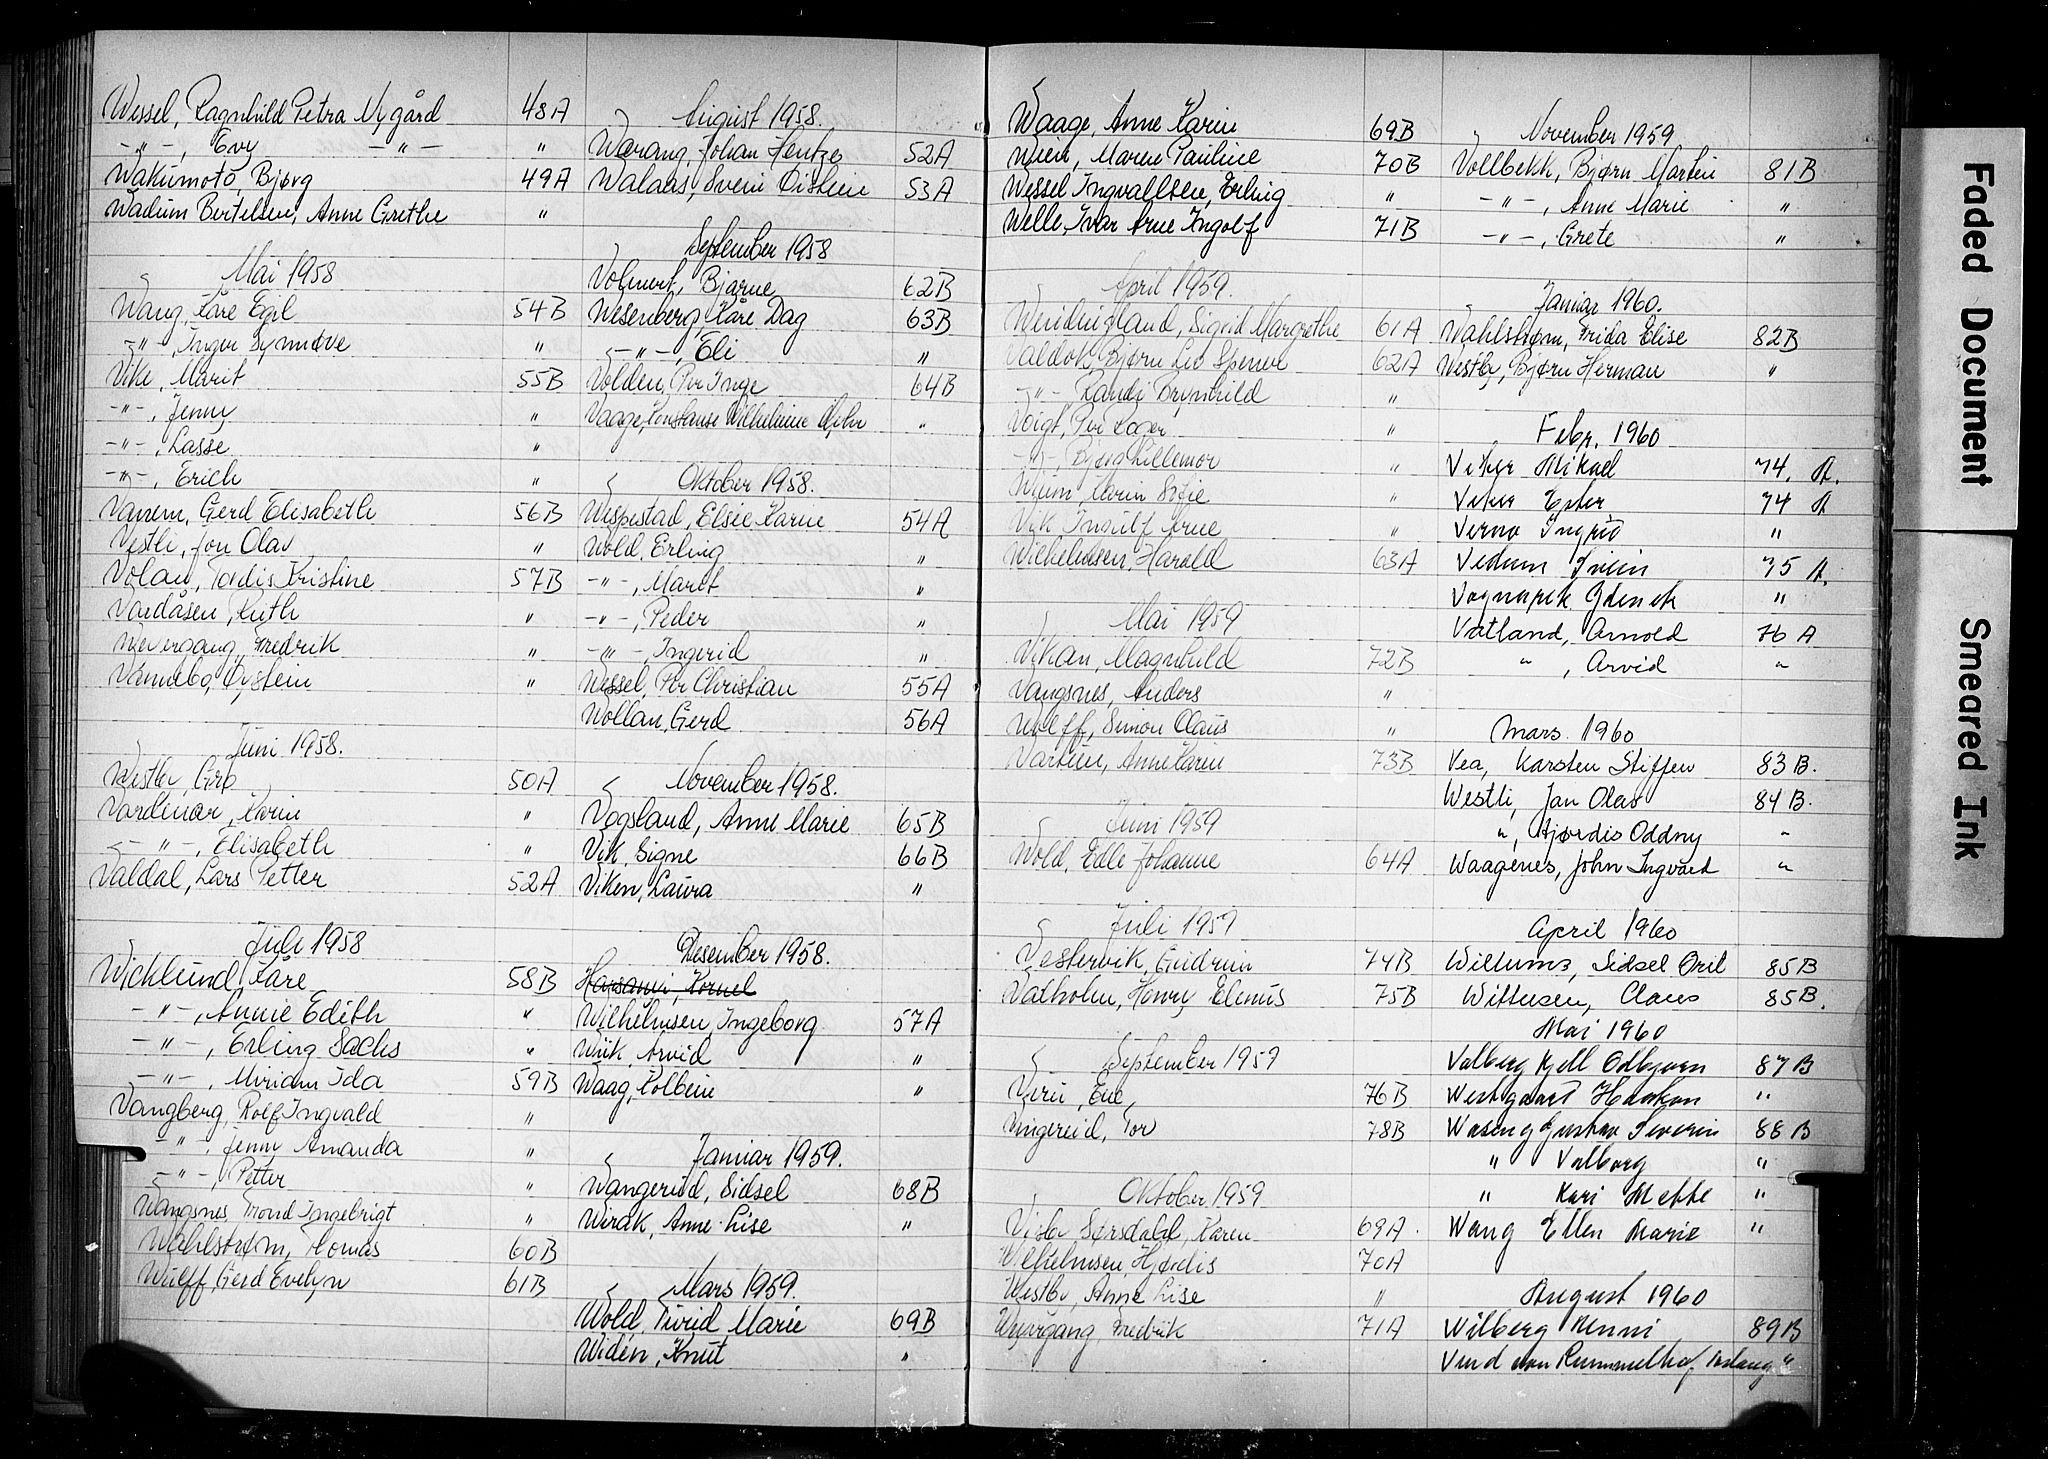 Wessel, Ragnhild Petra Nygård 48A
-"-, Evy -"- "
Wakumoto, Bjørg 49A
Wadum Bertelsen, Anne Grethe "
Mai 1958
Wang, Kåre Egil 54B
-"-, Inger Synnøve "
Vik, Marit 55B
-"-, Jenny "
-"-, Lasse "
-"-, Erich "
Vannem, Gerd Elisabeth 56B
Vestli, Jon Olav "
Volan, Tordis Kristine 57B
Vardåsen, Ruth "
Wevergang, Fredrik "
Vannebo, Øystein "
Juni 1958.
Westby, Gro 50A
Vardenær, Karin "
-"-, Elisabeth "
Valdal, Lars Petter 52A
Juli 1958
Wicklund, Kåre 58B
-"-, Annie Edith "
-"-, Erling Sachs "
-"-, Miriam Ida 59B
Vangberg, Rolf Ingvald "
-"-, Jenny Amanda "
-"-, Petter "
Wangsnes, Trond Ingebrigt "
Wahlstrøm, Thomas 60B
Wulff, Gerd Evelyn 61B
August 1958.
Warang, Johan Hentze 52A
Walaas, Svein Øistein 53A
September 1958
Volmert, Bjarne 62B
Wesenberg, Kåre Dag 63B
-"-, Eli "
Volden, Per Inge 64B
Vaage, Konstanse Wilhelmine "
Oktober 1958.
Wespestad, Elsie Karin 54A
Wold, Erling "
-"-, Marit "
-"-, Peder "
-"-, Ingerid "
Wessel, Per Christian 55A
Wollan, Gerd 56A
November 1958.
Vogsland, Anne Marie 65B
Vik, Signe 66B
Viken, Laura "
Desember 1958.
Harsanyi, Kornel
Wilhelmsen, Ingeborg 57A
Wiik, Arvid "
Waag, Kolbein "
Januar 1959.
Wangerud, Sidsel 68B
Wirak, Anne-Lise "
Mars 1959.
Wold, Turid Marie 69B
Widén, Knut "
Waage, Anne Karin 69B
Wien, Maren Pauline 70B
Wessel Ingvallsen, Erling "
Welle, Ivar Arne Ingolf 71B
April 1959.
Wendingland, Sigrid Margrethe 61A
Valdok, Bjørn Leo Spence 62A
-"- Randi Brynhild "
Voigt, Per Roger "
-"-, Bjørg Lillemor "
Wium, Karin Sofie "
Vik, Ingulf Arne "
Wilhelmsen, Harald 63A
Mai 1959
Vikan, Magnhild 72B
Vangsnes, Anders "
Wolff, Simon Claus "
Vartun, Anne Karin 73B
Juni 1959
Wold, Edle Johanne 64A
Juli 1959
Vestervik, Gudrun 74B
Vatholm, Henry Elenus 75B
September 1959
Viru, Ene, 76B
Vingereid, Tor 78B
Oktober 1959
Visby Sørsdahl, Karen 69A
Wilhelmsen, Hjørdis 70A
Westby, Anne Lise "
Wevrgang, Fredrik 71A
November 1959
Vollbekk, Bjørn Martin 81B
-"-, Anne Marie "
-"-, Grete "
Januar 1960.
Wahlstrøm, Frida Elise 82B
Westby, Bjørn Herman "
Febr. 1960
Viker Mikael 74. A.
Viker Ester 74 A
Vernø Ingrid "
Vedum Svein 75 A.
Vognapek Zdenek "
Vatland, Arnold 76 A
" , Arvid "
Mars 1960
Vea, Karsten Steffen 83B.
Westli, Jan Olav 84B.
", Hjørdis Oddny "
Waagenes, John Ingvard "
April 1960
Willums, Sidsel Oril 85B
Wittusen, Claus 85B.
Mai 1960
Valberg Kjell Odbjørn 87B
Westgaart Haakon "
Waseng Gustav Severin 88B
" Valborg "
" Kari Mette "
Wang Ellen Marie "
August 1960
Wilberg Unni 89B
Vind von Rummelhof, Aslaug "
Faded Document
Smeared Ink